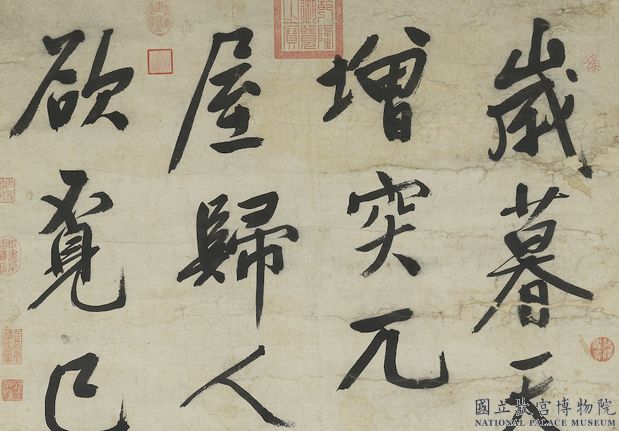 歲暮天
增突兀
屋歸人
欲覔已
國立故宮博物院
NATIONAL PALACE MUSEUM